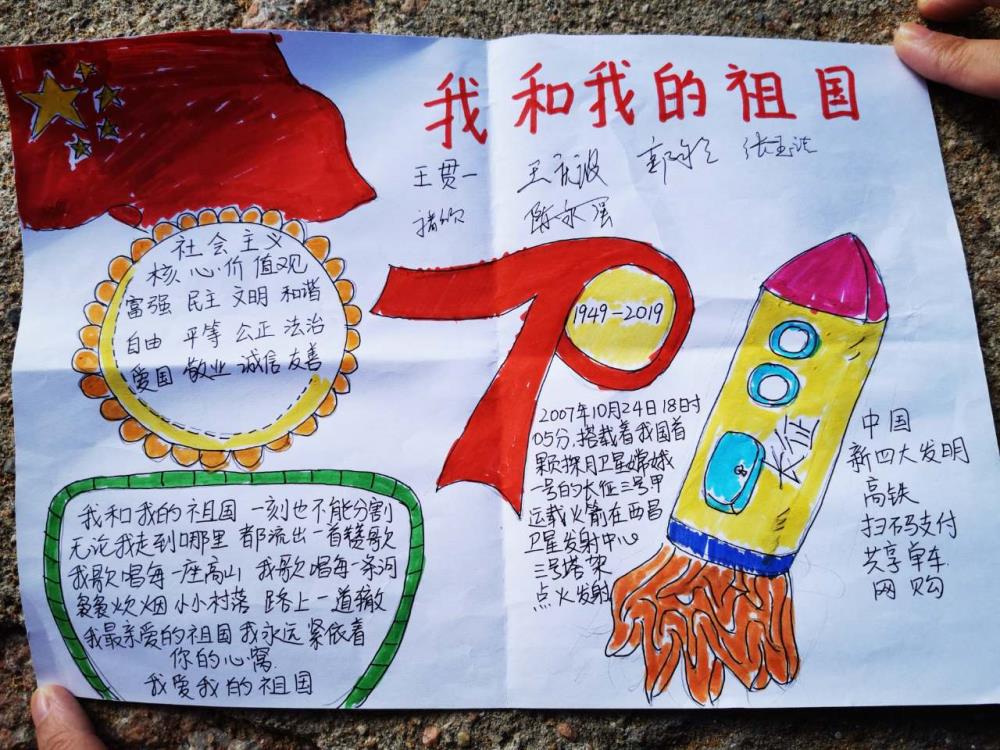 我和我的祖国
王贯一
陈永强
社会主义
核心价值观
富强 民主 文明 和谐
自由 平等 公正 法治
爱国 敬业 诚信 友善
1949-2019
2007年10月24日18时
05分,搭载着我国首
颗探月卫星嫦娥
一号的长征三号甲
运载火箭在西昌
卫星发射中心
三号塔架
点火发射
长征
中国
新四大发明
高铁
扫码支付
共享单车
网购
我和我的祖国 一刻也不能分割
无论我走到哪里 都流出一首赞歌
我歌唱每一座高山 我歌唱每一条河
袅袅炊烟 小小村落 路上一道辙
我最亲爱的祖国 我永远紧依着
你的心窝
我爱我的祖国